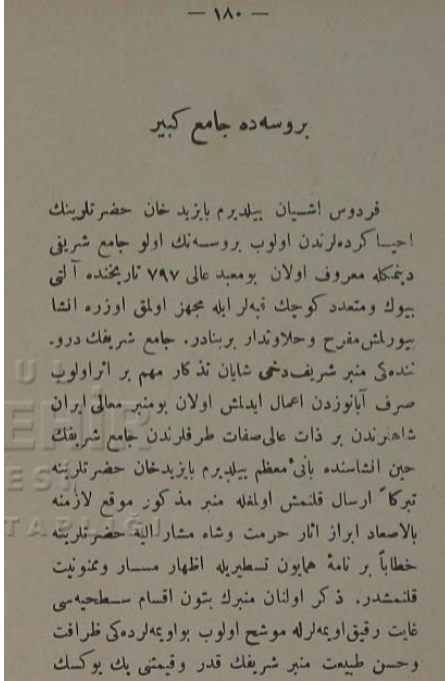 — ١٨٠ —
بروسه‌ده جامع كبير
فردوس اشيان ييلديرم بايزيد خان حضرتلرينك
احيا كرده‌لرندن اولوب بروسه‌نك اولو جامع شريفى
دينمكله معروف اولان بومعبد عالى ٧٩٧ تاريخنده آلتى
بيوك ومتعدد كوچك قبه‌لر ايله مجهز اولمق اوزره انشا
بيورلمش مفرح وحلاوتدار بربنادر. جامع شريفك درو.
ننده‌كى منبر شريف دخى شايان تذكار مهم بر اثر اولوب
صرف آبانوزدن اعمال ايدلمش اولان بومنبر معالى ايران
شاهلرندن بر ذات عالى صفات طرفلرندن جامع شريفك
حين انشاسنده بانئ معظم ييلديرم بايزيد خان حضرتلرينه
تبركاً ارسال قلنمش اولمغله منبر مذكور موقع لازمنه
بالاصعاد ابراز اثار حرمت وشاه مشار اليه حضرتلرينه
خطاباً بر نامهٔ همايون تسطيريله اظهار مسار وممنونيت
قلنمشدر. ذكر اولنان منبرك بتون اقسام سطحيه‌سى
غايت رقيق اويمه‌لرله موشح اولوب بواويمه‌لرده‌كى ظرافت
وحسن طبيعت منبر شريفك قدر وقيمتنى پك يوكسك